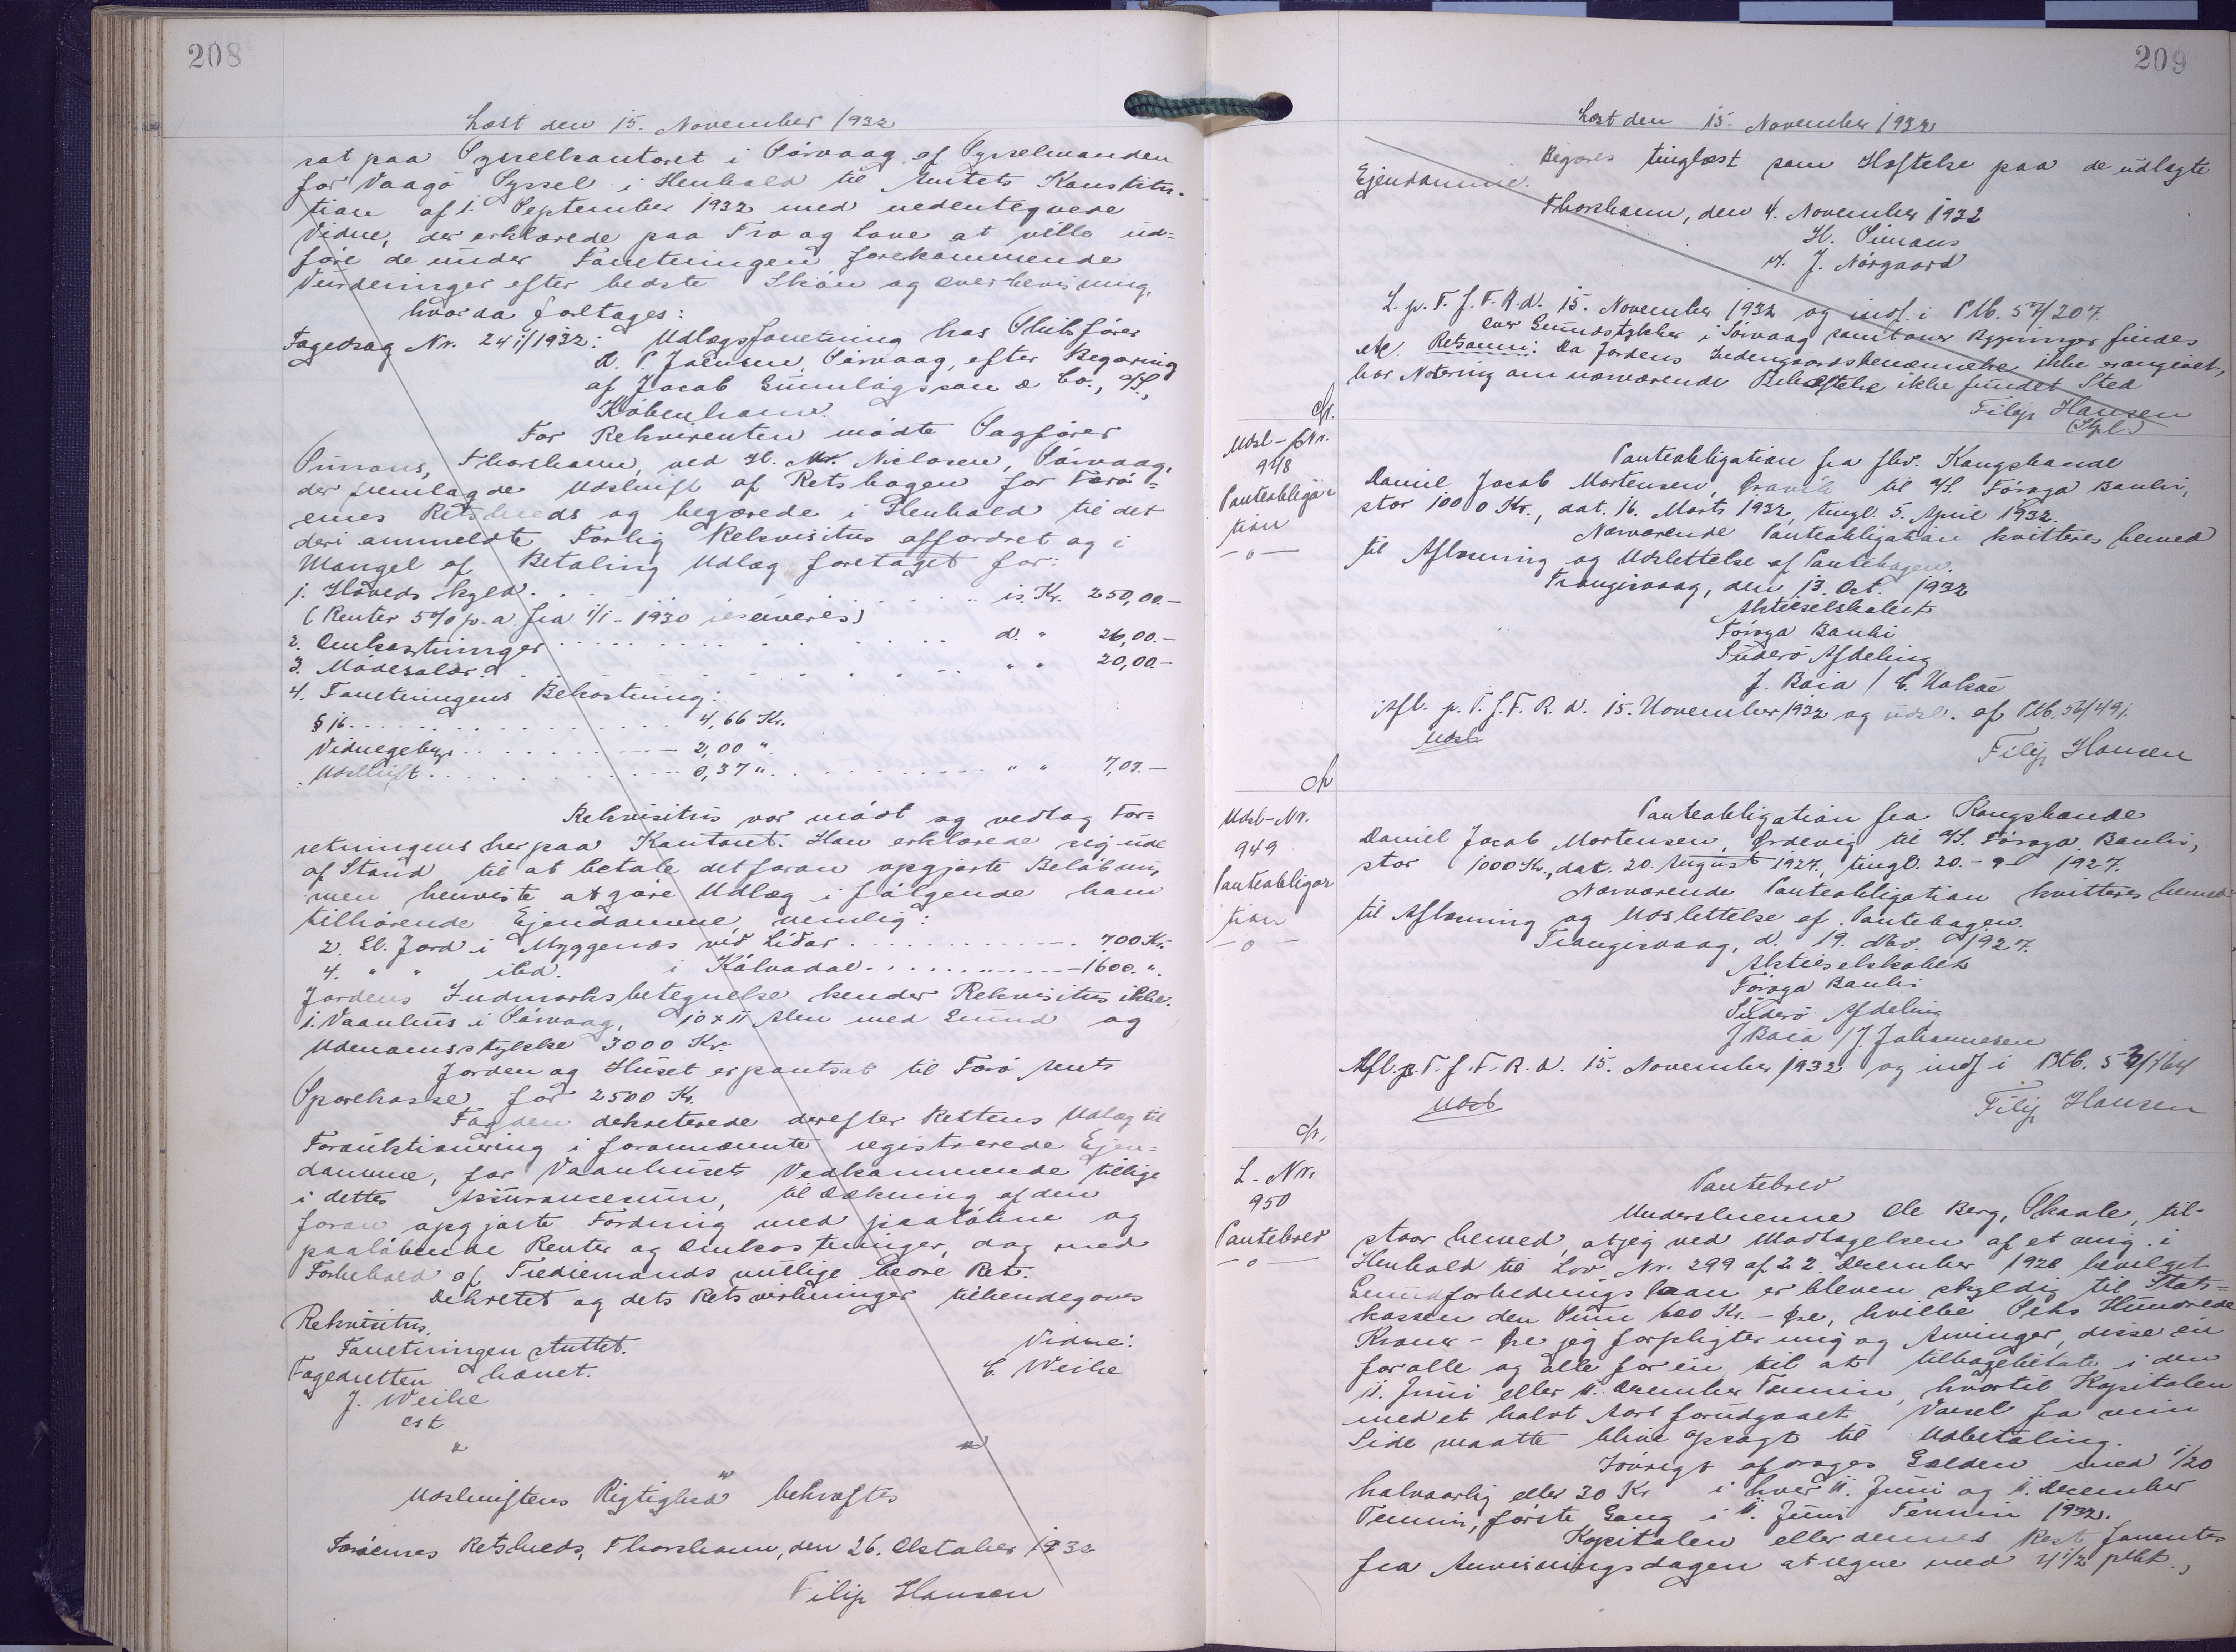 208
Læst den 15. November 1932
sat paa Sysselkontoret i Sörvaag af Sysselmanden
for Vaagö Syssel i Henhold til Amtets Konstitu-
tion af 1. September 1932 med nedentegnede
Vidne, der erklærede paa Tro og Love at ville ud=
före de under Forretningen forekommende
Vurderinger efter bedste Skön og Overbevisning,
hvorda foretages:
Fogedsag Nr. 241/1932: Udlægsforretning hos Skibsförer
D. P. Joensen, Sörvaag, efter Begæring
af Jacob Gunnlögsson & Co., A/S.,
København.
For Rekvirenten mödte Sagförer
Simons, Thorshavn, ved H. Mr. Niclasen, Sörvaag,
der fremlagde Udskrift af Retsbogen for Færö=
ernes Retskreds og begærede i Henhold til det
deri anmeldte Forlig Rekvisitus affordret og i
Mangel af Betaling Udlæg foretaget for:
1. Hovedskyld . . . . is. Kr. 250,00.-
(Renter 5% p. a. fra 1/1 - 1930 reserveres)
2. Omkostninger . . . . d. " 26,00.-
3. Mödesalær . . . . " " 20,00.-
4. Forretningens Bekostning:
§ 16 . . . . 4,66 Kr.
Vidnegebyr . . . . 2,00 "
Udskrift . . . . 0,37 " . . . . " " 7,03.-
Rekvisitus var mödt og vedtog For=
retningens her paa Kontoret. Han erklærede sig ude
af Stand til at betale det foran opgjorte Belöb nu,
men henviste at göre Udlæg i fölgende ham
tilhörende Ejendomme, nemlig:
2. Gl. Jord i Myggenæs við Líðar . . . . 700 Kr.
4. " " ibd. i Kálvadal . . . . 1600. ".
Jordens Indmarksbetegnelse kender Rekvisitus ikke.
1. Vaanhus i Sörvaag, 10 x 11 Alen med Grund og
Udenomsstykke 3000 Kr.
Jorden og Huset er pantsat til Færö Amts
Sparekasse for 2500 Kr.
Fogden dekreterede derefter Rettens Udlæg til
Forauktionering i forannævnte registrerede Ejen=
domme, for Vaanhusets Vedkommende tillige
i dettes Assurancesum, til Dækning af den
foran opgjorte Fordring med paalöbne og
paalöbende Renter og Omkostninger, dog med
Forbehold af Trediemands mulige bedre Ret.
Dekretet og dets Retsvirkninger tilkendegaves
Rekvisitus.
Forretningen sluttet.
Fogedretten hævet.
Vidne:
J. Weihe
C. Weihe
cst
" "
"
Udskriftens Rigtighed bekræftes
Færöernes Retskreds, Thorshavn, den 26. Oktober 1932
Filip Hansen
209
Læst den 15. November 1932
Begæres tinglæst som Hæftelse paa de udlagte
Ejendomme.
Thorshavn, den 4. November 1932
H. Simons
v. J. Nörgaard
L. p. T. f. F. R. d. 15. November 1932 og indf. i Ptb. 57/207.
over Grundstykker i Sörvaag samt over Bygninger findes
Retsanm: Da Jordens Indengaardsbenævnelse ikke er angivet,
har Notering om nærværende Behæftelse ikke fundet Sted
Filip Hansen
Udsl-Nr.
948
Panteobliga-
tion
-o-
Panteobligation fra fhv. Kongsbonde
Daniel Jacob Mortensen, til A/S. Föroya Banki,
stor 1000 Kr., dat. 16. Marts 1932, tingl. 5. April 1932.
Nærværende Panteobligation kvitteres herved
til Aflæsning og Udslettelse af Pantebogen.
Trangisvaag, den 13. Oct. 1932
Aktieselskabet
Föroya Banki
Suderö Afdeling
J. Baia /
Afl. p. T. f. F. R. d. 15. November 1932 og udsl. af Ptb. 56/491.
Udsl
Filip Hansen
Udsl-Nr.
949
Panteobliga-
tion
-o-
Panteobligation fra Kongsbonde
Daniel Jacob Mortensen, Ørdevig til A/S. Föroya Banki,
stor 1000 Kr., dat. 20. August 1927, tingl. 20.-9- 1927.
Nærværende Panteobligation kvitteres herved
til Aflæsning og Udslettelse af Pantebogen.
Trangisvaag, d. 19. Nbv. 1927.
Aktieselskabet
Föroya Banki
Suderö Afdeling
J Baia / J. Johannesen
Afl. p. T. f. F. R. d. 15. November 1932 og indf i Ptb. 53/164
Udsl
Filip Hansen
L. Nr.
950
Pantebrev
-o-
Pantebrev
Underskrevne Ole Berg, Skaale, til-
staar herved, at jeg ved Modtagelsen af et mig i
Henhold til Lov Nr. 299 af 22. December 1928 bevilget
Grundforbedringslaan er bleven skyldig til Stats=
kassen den Sum 600 Kr. - Øre, hvilke Seks Hundrede
Kroner - Øre jeg forpligter mig og Arvinger, disse én
for alle og alle for én til at tilbagebetale i den
11. Juni eller 11. December Termin, hvortil Kapitalen
med et halvt Aars forudgaaet Varsel fra min
Side maatte blive opsagt til Udbetaling.
Iövrigt afdrages Gælden med 1/20
halvaarlig eller 30 Kr i hver 11. Juni og 11. December
Termin, förste Gang i 11. Juni Termin 1932.
Kapitalen eller dennes Rest forrentes
fra Anvisningsdagen at regne med 4 1/2 pCt.,